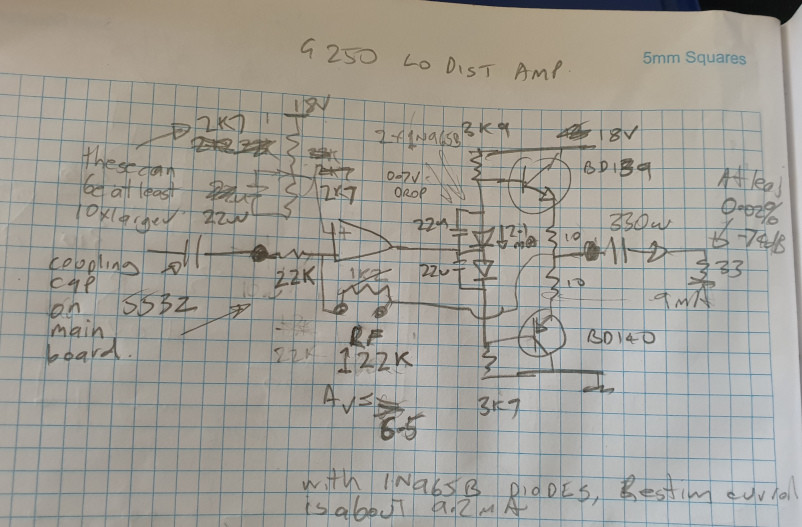 G 250 LO DIST AMP.
5mm Squares
18V
2K7
these can
be at least
10x larger
22u
2K7
2K7
2 x 1N965B
3K9
18V
BD139
0.7V
DROP
22u
22u
10
10
330u
At leas
0.002%
-74dB
33
9mA
coupling
cap
on
main
board.
5532
22K
1K2
22K
RF
122K
Av =
6.5
BD140
3K7
with 1N965B DIODES,
is about 9.2mA